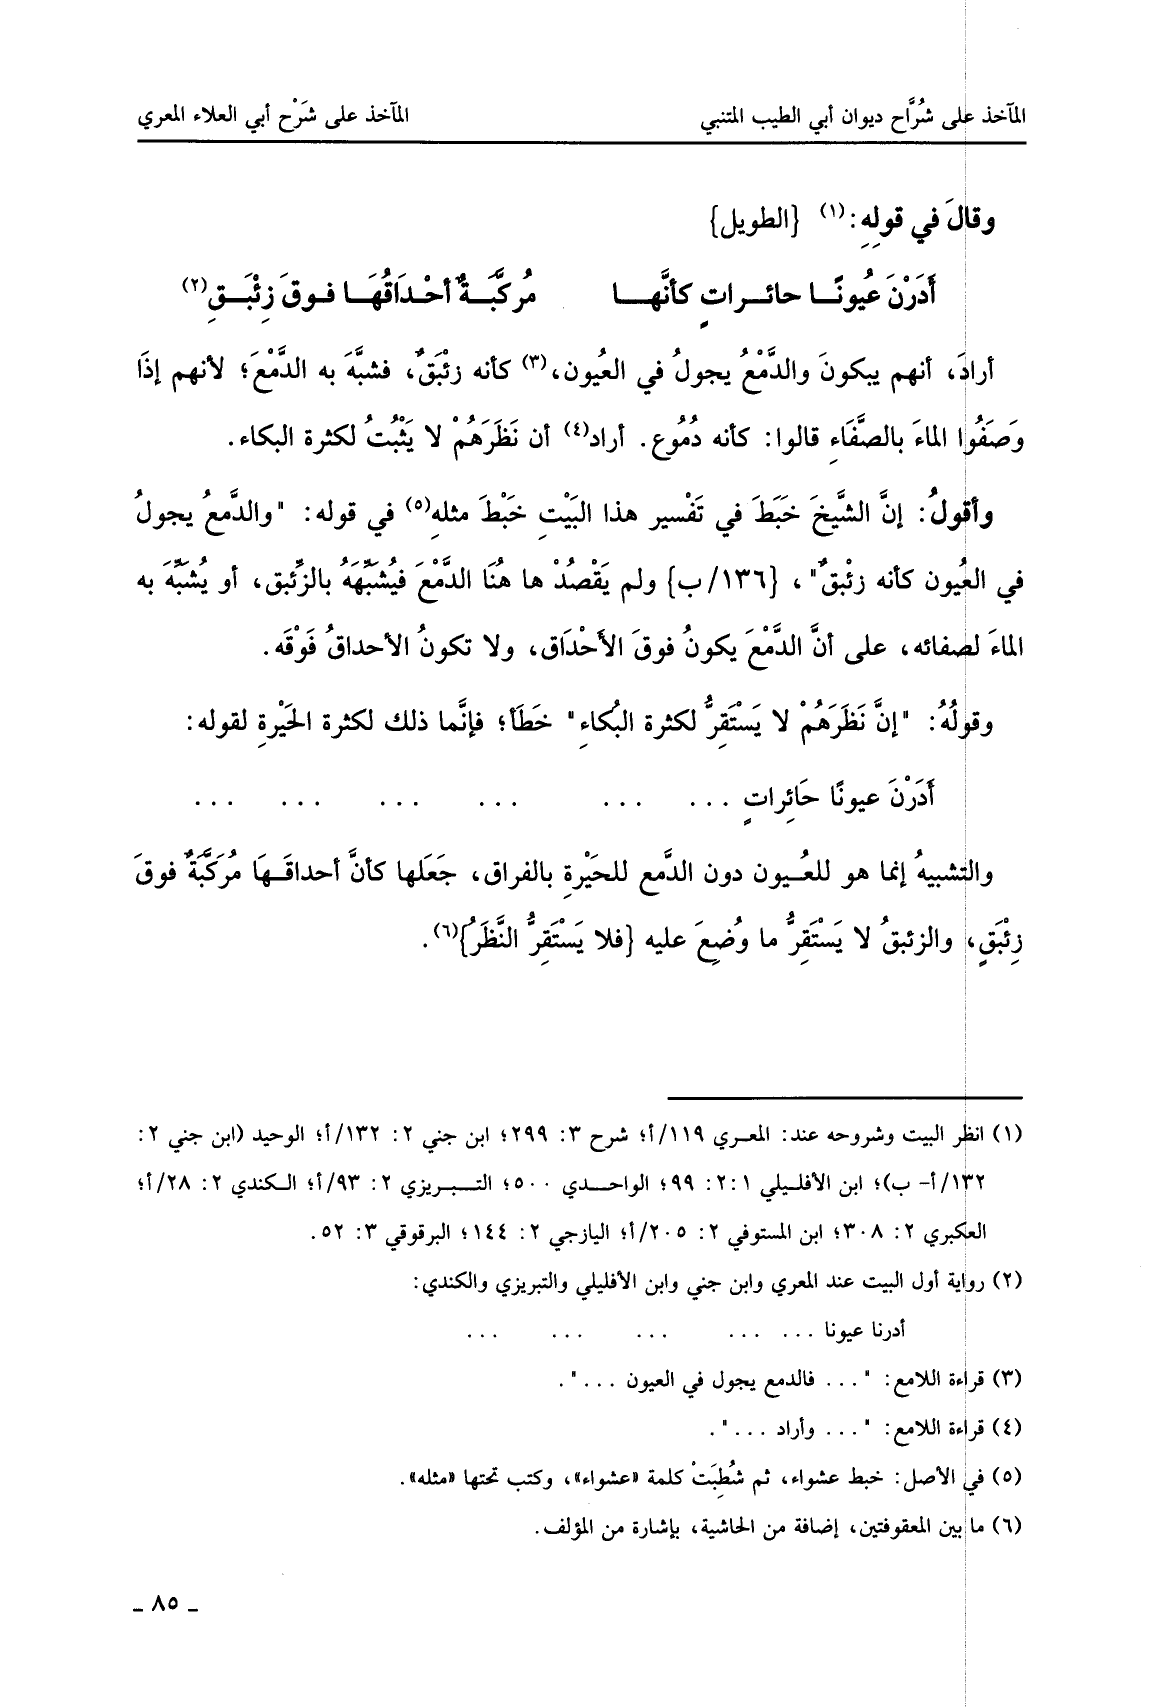 المآخذ على شُرَّاح ديوان أبي الطيب المتنبي المآخذ على شَرْح أبي العلاء المعري
وقالَ في قولِهِ:(١) {الطويل}
أَدَرْنَ عُيونًـا حائـراتٍ كأنَّهـا مُركَّبَـةٌ أحْدَاقُهَـا فـوقَ زِئْبَـقِ(٢)
أرادَ، أنهم يبكونَ والدَّمْعُ يجولُ في العُيون،(٣) كأنه زئبَقٌ، فشبَّهَ به الدَّمْعَ؛ لأنهم إذَا
وَصَفُوا الماءَ بالصَّفَاءِ قالوا: كأنه دُمُوع. أراد(٤) أن نَظَرَهُمْ لا يَثْبُتُ لكثرة البكاء.
وأقولُ: إنَّ الشَّيخَ خَبَطَ في تَفْسير هذا البَيْتِ خَبْطَ مثلهِ(٥) في قوله: "والدَّمعُ يجولُ
في العُيون كأنه زئْبقٌ"، {١٣٦/ب} ولم يَقْصُدْ ها هُنَا الدَّمْعَ فَيُشبِّهَهُ بالزِّئبق، أو يُشبِّهَ به
الماءَ لصفائه، على أنَّ الدَّمْعَ يكونُ فوقَ الأَحْدَاق، ولا تكونُ الأحداقُ فَوْقَه.
وقولُهُ: "إنَّ نَظَرَهُمْ لا يَسْتَقِرُّ لكثرة البُكاءِ" خَطَأ؛ فإنَّما ذلك لكثرة الحَيْرةِ لقوله:
أَدَرْنَ عيونًا حَائِراتٍ ... ... ... ... ... ...
والتشبيهُ إنما هو للعُـيون دون الدَّمع للحَيْرةِ بالفراق، جَعَلها كأنَّ أحداقَـهَا مُركَّبَةٌ فوقَ
زِئْبَقٍ، والزئبقُ لا يَسْتَقِرُّ ما وُضِعَ عليه {فلا يَسْتَقِرُّ النَّظَرُ}(٦).
(١) انظر البيت وشروحه عند: المعـري ١١٩/أ؛ شرح ٣: ٢٩٩؛ ابن جني ٢: ١٣٢/أ؛ الوحيد (ابن جني ٢:
١٣٢/أ- ب)؛ ابن الأفلـيلي ٢:١: ٩٩؛ الواحـدي ٥٠٠؛ التـبريزي ٢: ٩٣/أ؛ الكندي ٢: ٢٨/أ؛
العكبري ٢: ٣٠٨؛ ابن المستوفي ٢: ٢٠٥/أ؛ اليازجي ٢: ١٤٤؛ البرقوقي ٣: ٥٢.
(٢) رواية أول البيت عند المعري وابن جني وابن الأفليلي والتبريزي والكندي:
أدرنا عيونا ... ... ... ... ...
(٣) قراءة اللامع: "... فالدمع يجول في العيون ...".
(٤) قراءة اللامع: "... وأراد ...".
(٥) في الأصل: خبط عشواء، ثم شُطِبَتْ كلمة «عشواء»، وكتب تحتها «مثله».
(٦) ما بين المعقوفتين، إضافة من الحاشية، بإشارة من المؤلف.
ـ ٨٥ ـ